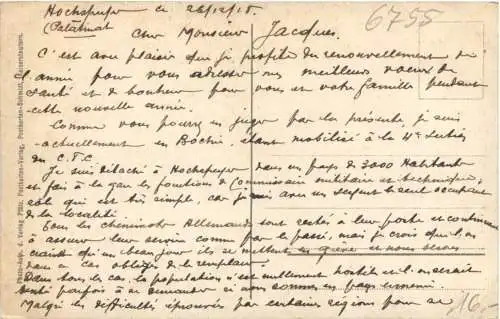 Hochspeyer le 26/12/18.
(Palatinat)
6755
Cher Monsieur Jacques.
C'est avec plaisir que je profite du renouvellement de
l'année pour vous adresser mes meilleurs vœux de
santé et de bonheur pour vous et votre famille pendant
cette nouvelle année.
Comme vous pourrez en juger par la présente, je suis
actuellement en Bochie, étant mobilisé à la 4e Section
du C.F.C.
Je suis détaché à Hochspeyer dans un pays de 2000 habitants
et fais à la gare les fonctions de Commissaire militaire et technique,
rôle qui est très simple, car je suis avec un sergent le seul occupant
de la localité.
Tous les cheminots Allemands sont restés à leur poste et continuent
à assurer leur service comme par le passé, mais je crois qu'il en
craint qu'un beau jour ils se mettent en grève et nous serons
dans ce cas obligés de les remplacer
Dans tous les cas, la population n'est nullement hostile et l'on serait
tenté parfois à se demander si nous sommes en pays ennemi.
Malgré les difficultés éprouvées par certaines régions pour se
16.-
Photo-Aufn. u. Verlag Pfälz. Postkarten-Verlag, Kaiserslautern.